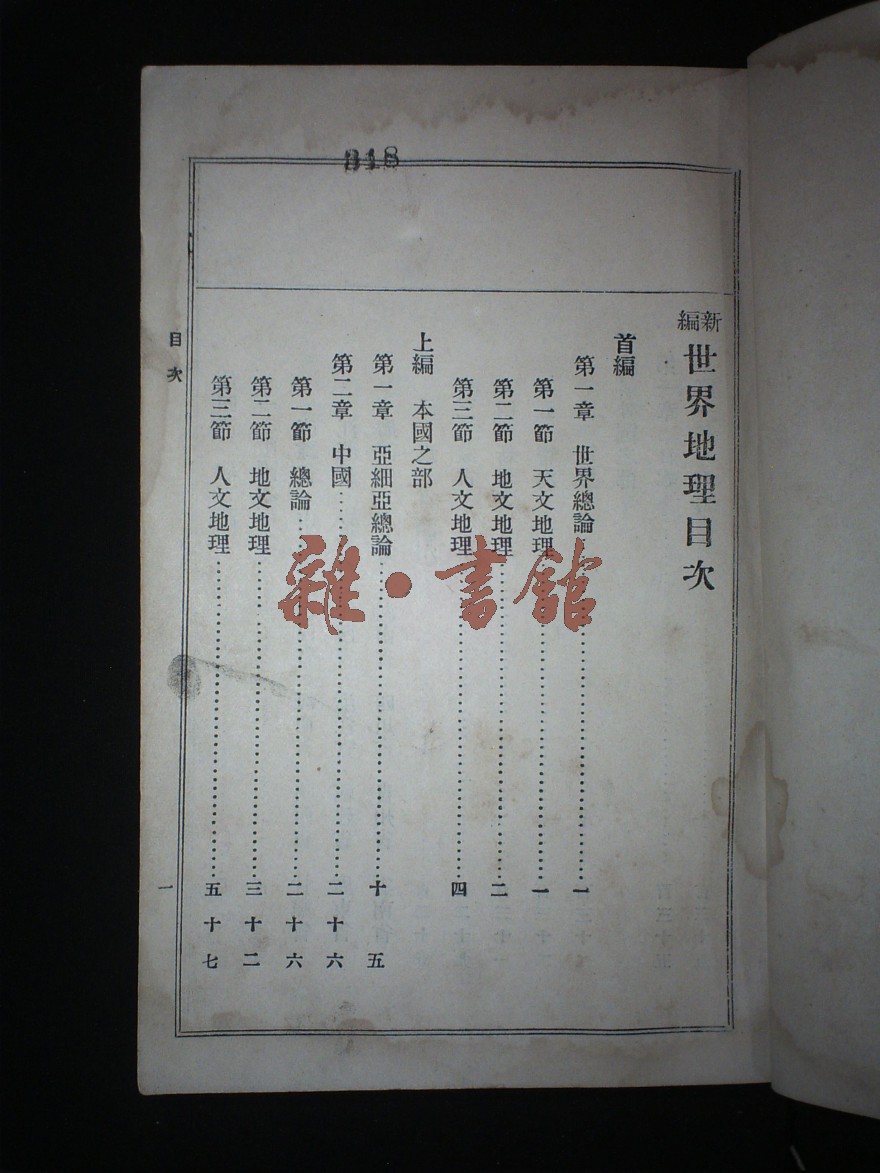 318
新編世界地理目次
首編
第一章 世界總論……一
第一節 天文地理……一
第二節 地文地理……二
第三節 人文地理……四
上編 本國之部
第一章 亞細亞總論……十五
第二章 中國……二十六
第一節 總論……二十六
第二節 地文地理……三十二
第三節 人文地理……五十七
目次
一
雜·書館